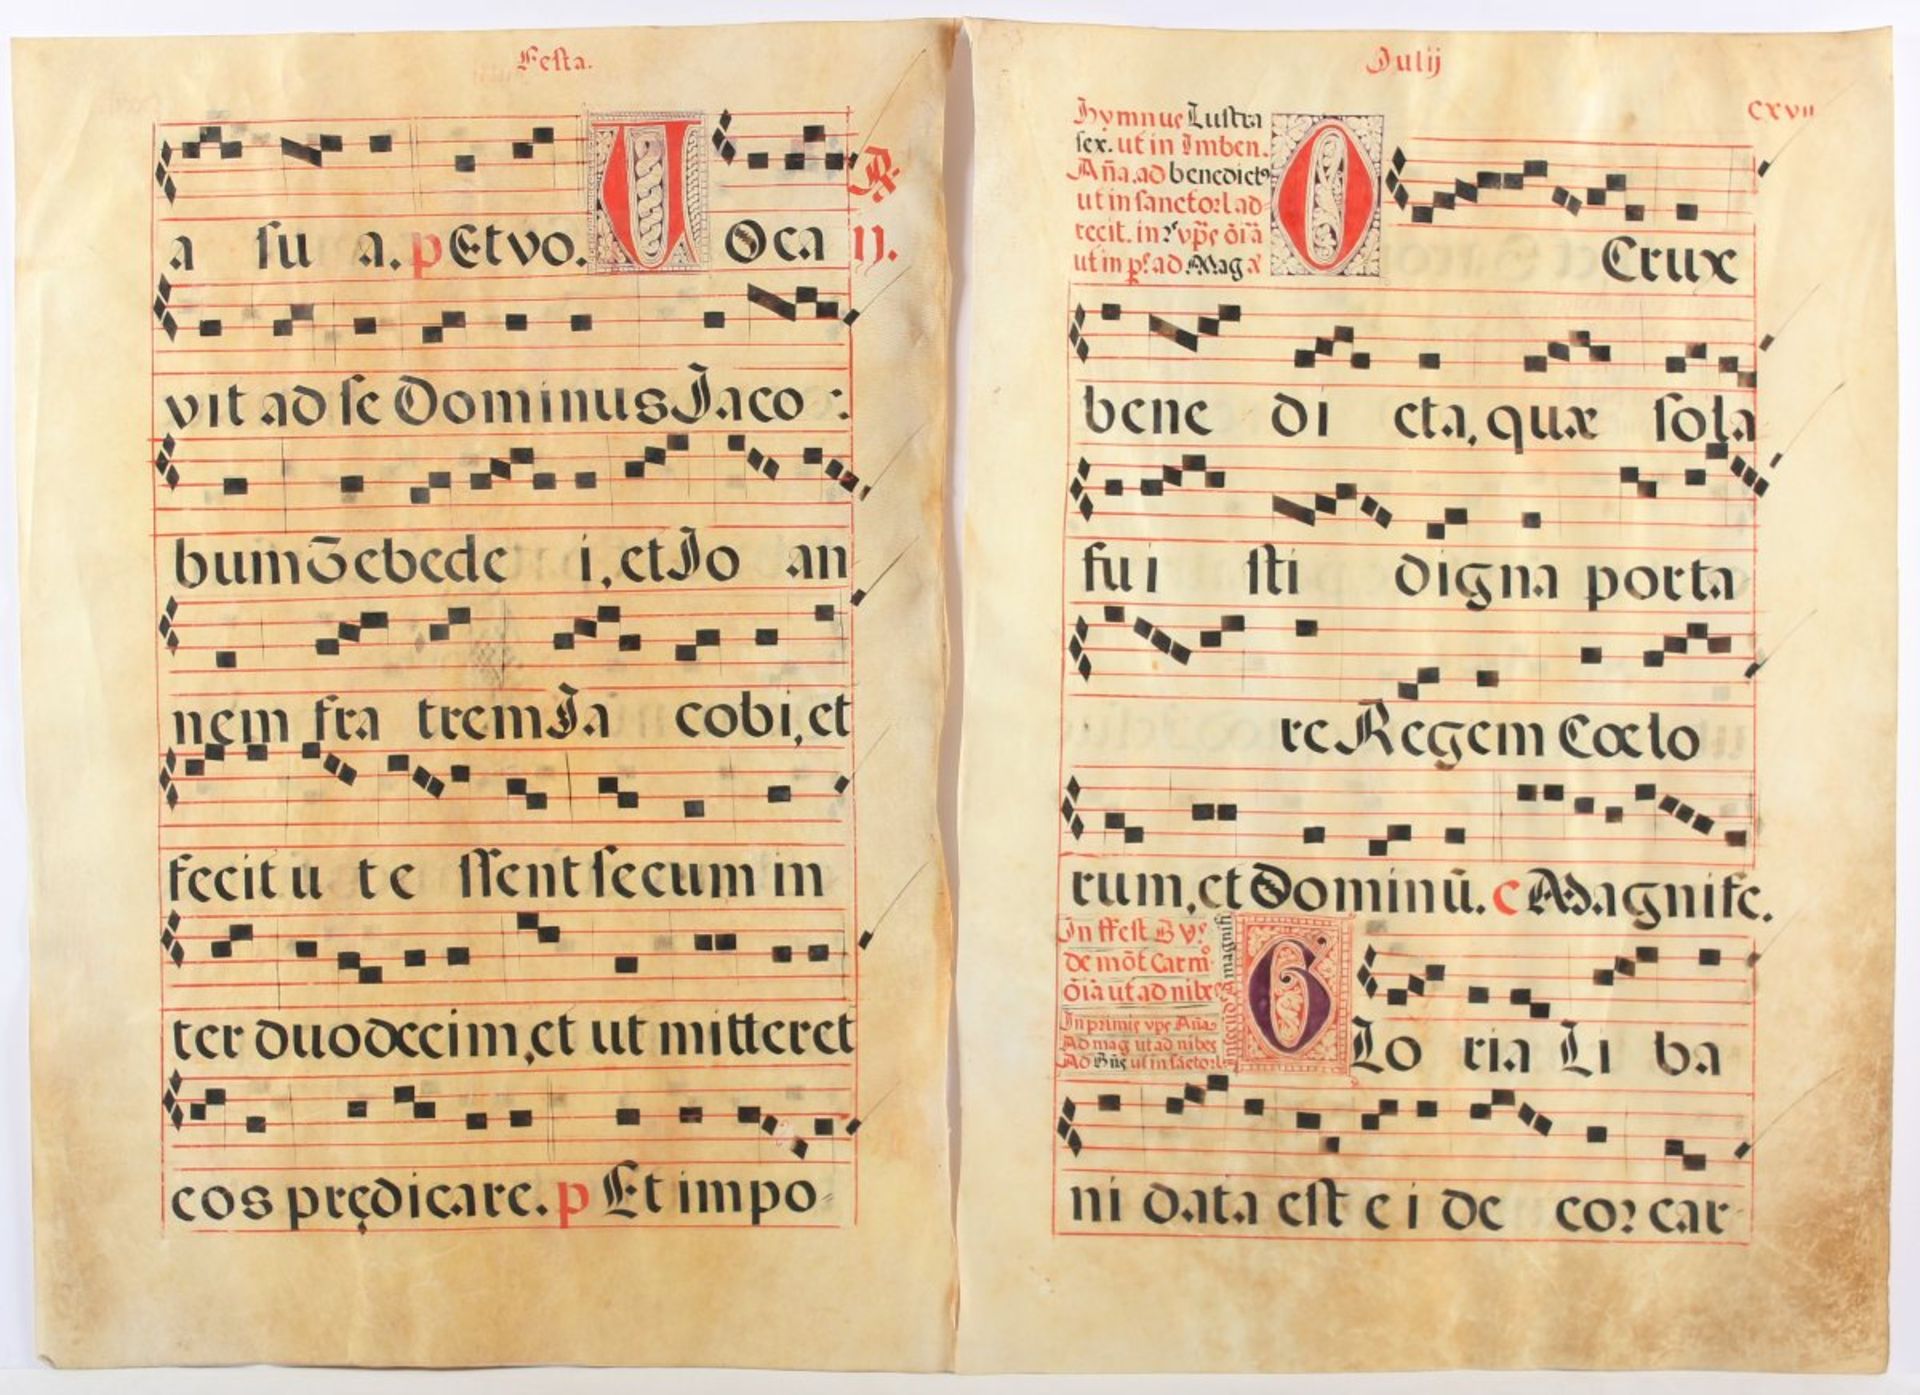 Festa.
a su a. p Et vo. V oca R. ij.
vit ad se Dominus Jaco :
bum Zebede i, et Jo an
nem fra trem Ja cobi, et
fecit u te ssent secum in
ter duodecim, et ut mitteret
cos prędicare. p Et impo-
Julij
cxvii
Hymnus Lustra
sex. ut in Imben.
Aña. ad benedict9
ut in sanctorl ad-
ut in p.º ad Mag
O Crux
bene di cta, quæ sola
fui sti digna porta
re Regem Cœlo
rum, et Dominũ. e Magnifc.
In ffest B V.e
de mõt Carm
õia ut ad nibes
In primis vpe Aña
Ad mag ut ad nibes
G Lo ria Li ba
ni data est e i de cor car-